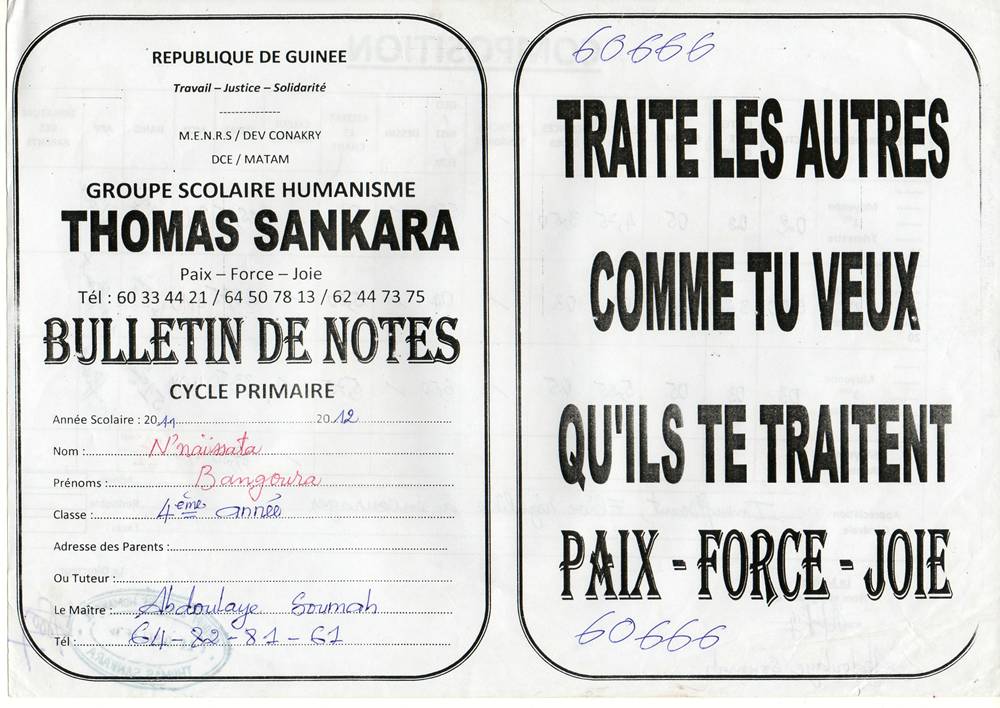 REPUBLIQUE DE GUINEE
Travail – Justice – Solidarité
---------------
M.E.N.R.S / DEV CONAKRY
DCE / MATAM
GROUPE SCOLAIRE HUMANISME
THOMAS SANKARA
Paix – Force – Joie
Tél : 60 33 44 21 / 64 50 78 13 / 62 44 73 75
BULLETIN DE NOTES
CYCLE PRIMAIRE
Année Scolaire : 2011 2012
Nom : N'naïssata
Prénoms : Bangoura
Classe : 4ème année
Adresse des Parents :
Ou Tuteur :
Le Maître : Abdoulaye Soumah
Tél : 64-82-81-61
THOMAS SANKARA
60666
TRAITE LES AUTRES
COMME TU VEUX
QU'ILS TE TRAITENT
PAIX - FORCE - JOIE
60666